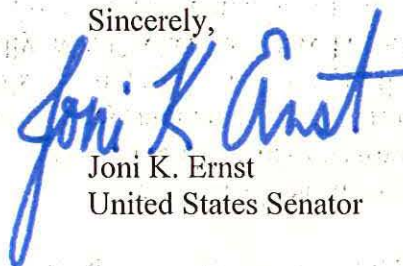 Sincerely,
Joni K Ernst
Joni K. Ernst
United States Senator